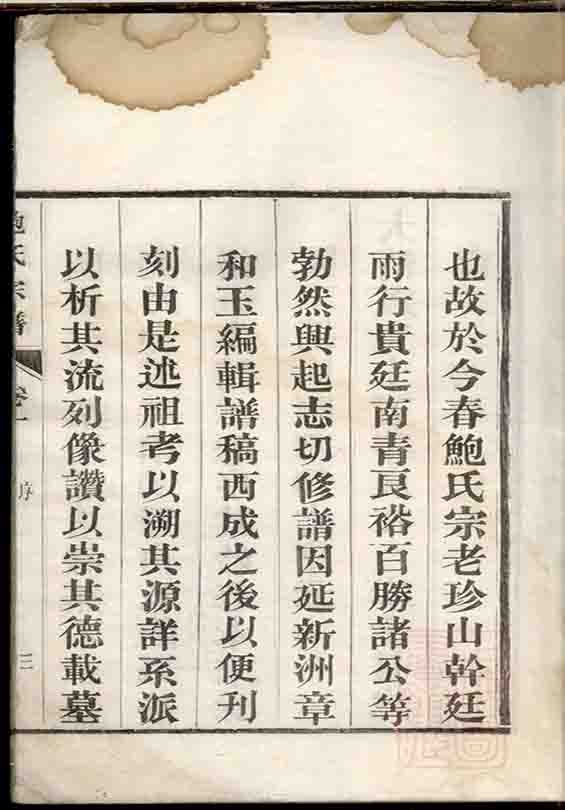 也故於今春鮑氏宗老珍山幹廷
雨行貴廷南青良裕百勝諸公等
勃然興起志切修譜因延新洲章
和玉編輯譜稿西成之後以便刊
刻由是述祖考以溯其源詳系派
以析其流列像讚以崇其德載墓
鮑氏宗譜
卷一
序
三